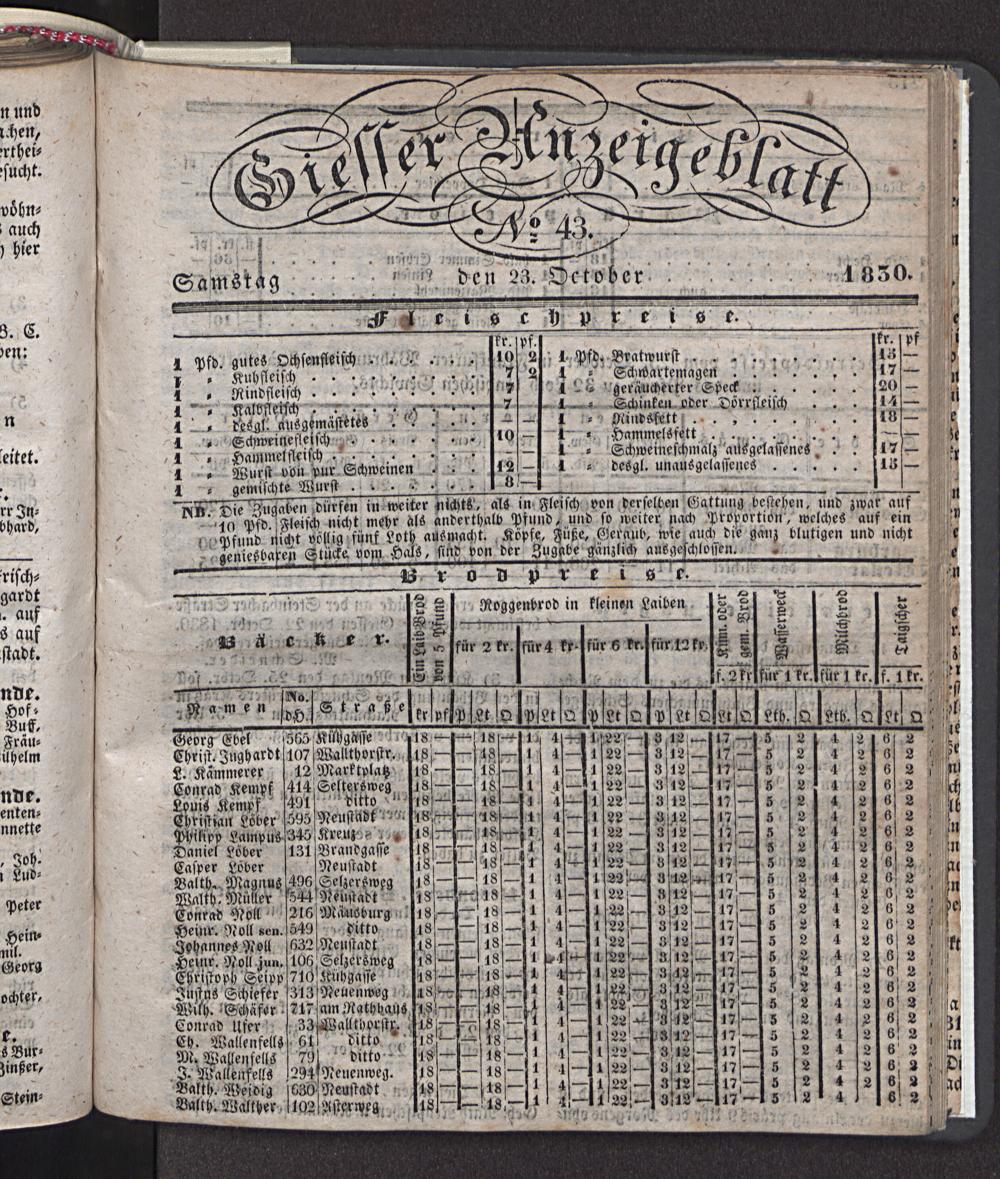 n und
a.hen,
erthei-
sucht.
wöhn-
s auch
h hier
B. C.
ben:
n
leitet.
rr In-
bhard,
frisch-
gardt
. auf
s auf
stadt.
nde.
Hof-
Buff,
Fräu-
ilhelm
nde.
enten-
nnette
, Joh.
i Lud-
Peter
Hein-
mil.
Georg
ochter,
e.
s Bur-
Zinßer,
Stein-
Giesser Anzeigeblatt
No 43.
Samstag den 23. October 1830.
Fleischpreise.
kr. pf. kr. pf
1 Pfd. gutes Ochsenfleisch 10 2 1 Pfd. Bratwurst 15 —
1 " Kuhfleisch 7 2 1 " Schwartemagen 17 —
1 " Rindfleisch 7 1 " geräucherter Speck 20 —
1 " Kalbfleisch 7 — 1 " Schinken oder Dörrfleisch 14 —
1 " desgl. ausgemästetes — — 1 " Rindsfett 18 —
1 " Schweinefleisch 10 — 1 " Hammelsfett
1 " Hammelfleisch — 1 " Schweineschmalz ausgelassenes 17 —
1 " Wurst von pur Schweinen 12 — 1 " desgl. unausgelassenes 15 —
1 " gemischte Wurst 8 —
NB. Die Zugaben dürfen in weiter nichts, als in Fleisch von derselben Gattung bestehen, und zwar auf
10 Pfd. Fleisch nicht mehr als anderthalb Pfund, und so weiter nach Proportion, welches auf ein
Pfund nicht völlig fünf Loth ausmacht. Köpfe, Füße, Geraub, wie auch die ganz blutigen und nicht
geniesbaren Stücke vom Hals, sind von der Zugabe gänzlich ausgeschlossen.
Brodpreise.
Bäcker. Ein Laib Brod von 5 Pfund Roggenbrod in kleinen Laiben Krm. oder gem. Brod Wasserweck Milchbrod Taigscher
für 2 kr. für 4 kr. für 6 kr. für 12 kr. f. 2 kr für 1 kr. für 1 kr. f. 1 kr.
Namen No. dH. Straße kr pf P Lt Q P Lt Q P Lt Q P Lt Q Lt Q Lth. Q Lth. Q Lt Q
Georg Ebel 565 Kühgasse 18 — — 18 — 1 4 — 1 22 — 3 12 — 17 — 5 2 4 2 6 2
Christ. Inghardt 107 Wallthorstr. 18 — — 18 — 1 4 — 1 22 — 3 12 — 17 — 5 2 4 2 6 2
L. Kämmerer 12 Marktplatz 18 — — 18 — 1 4 — 1 22 — 3 12 — 17 — 5 2 4 2 6 2
Conrad Kempf 414 Seltersweg 18 — — 18 — 1 4 — 1 22 — 3 12 — 17 — 5 2 4 2 6 2
Louis Kempf 491 ditto 18 — — 18 — 1 4 — 1 22 — 3 12 — 17 — 5 2 4 2 6 2
Christian Löber 595 Neustadt 18 — — 18 — 1 4 — 1 22 — 3 12 — 17 — 5 2 4 2 6 2
Philipp Lampus 345 Kreuz 18 — — 18 — 1 4 — 1 22 — 3 12 — 17 — 5 2 4 2 6 2
Daniel Löber 131 Brandgasse 18 — — 18 — 1 4 — 1 22 — 3 12 — 17 — 5 2 4 2 6 2
Casper Löber Neustadt 18 — — 18 — 1 4 — 1 22 — 3 12 — 17 — 5 2 4 2 6 2
Balth. Magnus 496 Selzersweg 18 — — 18 — 1 4 — 1 22 — 3 12 — 17 — 5 2 4 2 6 2
Balth. Müller 544 Neustadt 18 — — 18 — 1 4 — 1 22 — 3 12 — 17 — 5 2 4 2 6 2
Conrad Noll 216 Mäusburg 18 — — 18 — 1 4 — 1 22 — 3 12 — 17 — 5 2 4 2 6 2
Heinr. Noll sen. 549 ditto 18 — — 18 — 1 4 — 1 22 — 3 12 — 17 — 5 2 4 2 6 2
Johannes Noll 632 Neustadt 18 — — 18 — 1 4 — 1 22 — 3 12 — 17 — 5 2 4 2 6 2
Heinr. Noll jun. 106 Selzersweg 18 — — 18 — 1 4 — 1 22 — 3 12 — 17 — 5 2 4 2 6 2
Christoph Seipp 710 Kühgasse 18 — — 18 — 1 4 — 1 22 — 3 12 — 17 — 5 2 4 2 6 2
Justus Schiefer 313 Neuenweg 18 — — 18 — 1 4 — 1 22 — 3 12 — 17 — 5 2 4 2 6 2
Wilh. Schäfer 717 am Rathhaus 18 — — 18 — 1 4 — 1 22 — 3 12 — 17 — 5 2 4 2 6 2
Conrad Ufer 33 Wallthorstr. 18 — — 18 — 1 4 — 1 22 — 3 12 — 17 — 5 2 4 2 6 2
Ch. Wallenfels 61 ditto 18 — — 18 — 1 4 — 1 22 — 3 12 — 17 — 5 2 4 2 6 2
M. Wallenfells 79 ditto 18 — — 18 — 1 4 — 1 22 — 3 12 — 17 — 5 2 4 2 6 2
J. Wallenfells 294 Neuenweg. 18 — — 18 — 1 4 — 1 22 — 3 12 — 17 — 5 2 4 2 6 2
Balth. Weidig 630 Neustadt 18 — — 18 — 1 4 — 1 22 — 3 12 — 17 — 5 2 4 2 6 2
Balth. Walther 102 Asterweg 18 — — 18 — 1 4 — 1 22 — 3 12 — 17 — 5 2 4 2 6 2